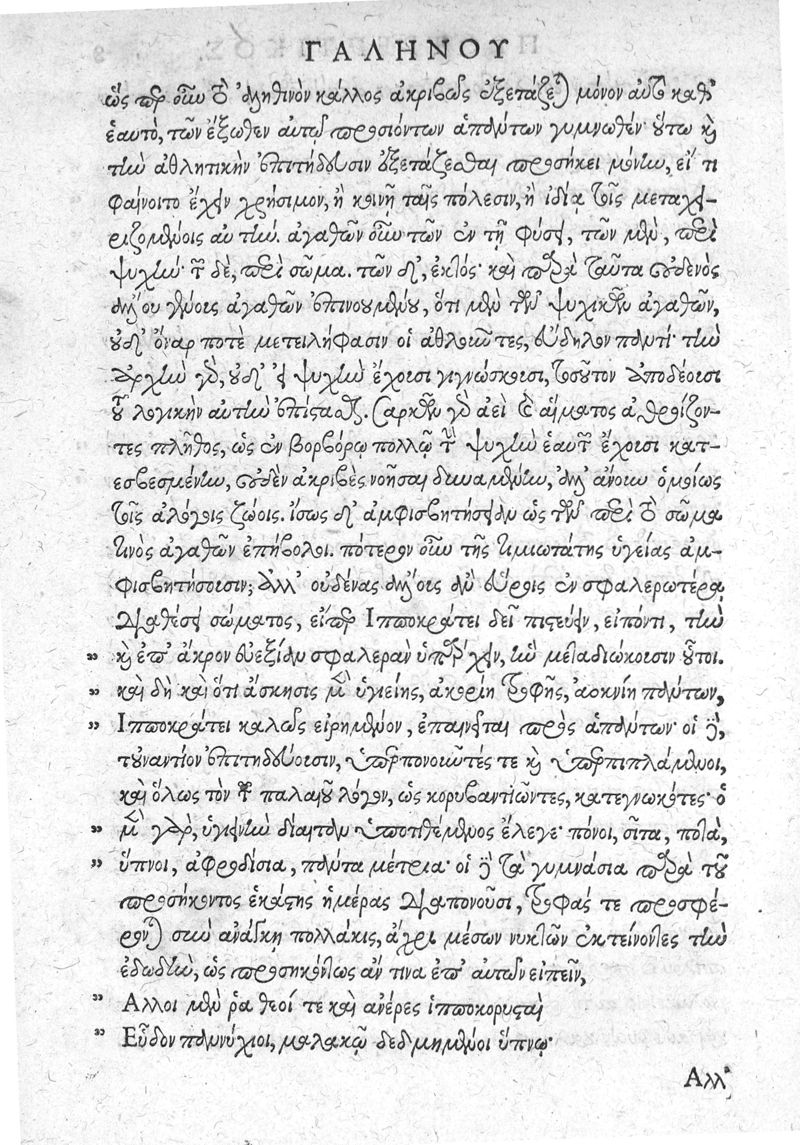 ΓΑΛΗΝΟΥ
ὥς περ οὖν τὸ ἀληθινὸν κάλλος ἀκριβῶς ἐξετάζεται μόνον αὐτὸ καθ'
ἑαυτὸ, τῶν ἔξωθεν αὐτῷ προσιόντων ἁπάντων γυμνωθέν· οὕτω καὶ
τὴν ἀθλητικὴν ἐπιτήδευσιν ἐξετάζεσθαι προσήκει μόνην, εἴ τι
φαίνοιτο ἔχειν χρήσιμον, ἢ κοινῇ ταῖς πόλεσιν, ἢ ἰδίᾳ τοῖς μεταχει-
ριζομένοις αὐτήν. ἀγαθῶν οὖν τῶν ἐν τῇ φύσει, τῶν μὲν, περὶ
ψυχήν· τῶν δὲ, περὶ σῶμα. τῶν δ', ἐκτός· καὶ παρὰ ταῦτα οὐδενὸς
ἄλλου γένους ἀγαθῶν ἐπινουμένου, ὅτι μὲν τῶν ψυχικῶν ἀγαθῶν,
οὐδ' ὄναρ ποτὲ μετειλήφασιν οἱ ἀθλοῦντες, εὔδηλον παντί· τὴν
ἀρχὴν γὰρ, οὐδ' εἰ ψυχὴν ἔχουσι γιγνώσκουσι, τοσοῦτον ἀποδέουσι
τοῦ λογικὴν αὐτὴν ἐπίστασθαι. Σαρκῶν γὰρ ἀεὶ καὶ αἵματος ἀθροίζον-
τες πλῆθος, ὡς ἐν βορβόρῳ πολλῷ τὴν ψυχὴν ἑαυτῶν ἔχουσι κατ-
εσβεσμένην, οὐδὲν ἀκριβὲς νοῆσαι δυναμένην, ἀλλ' ἄνουν ὁμοίως
τοῖς ἀλόγοις ζώοις. ἴσως δ' ἀμφισβητήσειαν ὡς τῶν περὶ τὸ σῶμα
τινὸς ἀγαθῶν ἐπήβολοι. πότερον οὖν τῆς τιμιωτάτης ὑγιείας ἀμ-
φισβητήσουσιν; ἀλλ' οὐδένας ἄλλους ἂν εὕροις ἐν σφαλερωτέρᾳ
διαθέσει σώματος, εἴπερ Ἱπποκράτει δεῖ πιστεύειν, εἰπόντι, τὴν
„ καὶ ἐπ' ἄκρον εὐεξίαν σφαλερὰν ὑπάρχειν, ἣν μεταδιώκουσιν οὗτοι.
„ καὶ δὴ καὶ ὅτι ἄσκησις μὲν ὑγιείης, ἀκορίη τροφῆς, ἀοκνίη πάντων,
„ Ἱπποκράτει καλῶς εἰρημένον, ἐπαινεῖται πρὸς ἁπάντων· οἱ δὲ,
τοὐναντίον ἐπιτηδεύουσιν, ὑπερπονοῦντές τε καὶ ὑπερπιπλάμενοι,
καὶ ὅλως τὸν τοῦ παλαιοῦ λόγον, ὡς κορυβαντιῶντες, κατεγνωκότες· ὁ
„ μὲν γὰρ, ὑγιεινὴν δίαιταν ὑποτιθέμενος ἔλεγε· πόνοι, σῖτα, ποτὰ,
„ ὕπνοι, ἀφροδίσια, πάντα μέτρια· οἱ δὲ τὰ γυμνάσια παρὰ τοῦ
προσήκοντος ἑκάστης ἡμέρας διαπονοῦσι, τροφάς τε προσφέ-
ρονται σὺν ἀνάγκῃ πολλάκις, ἄχρι μέσων νυκτῶν ἐκτείνοντες τὴν
ἐδωδὴν, ὡς προσηκόντως ἄν τινα ἐπ' αὐτῶν εἰπεῖν,
„ Ἄλλοι μέν ῥα θεοί τε καὶ ἀνέρες ἱπποκορυσταὶ
„ Εὗδον παννύχιοι, μαλακῷ δεδμημένοι ὕπνῳ·
Ἀλλ'